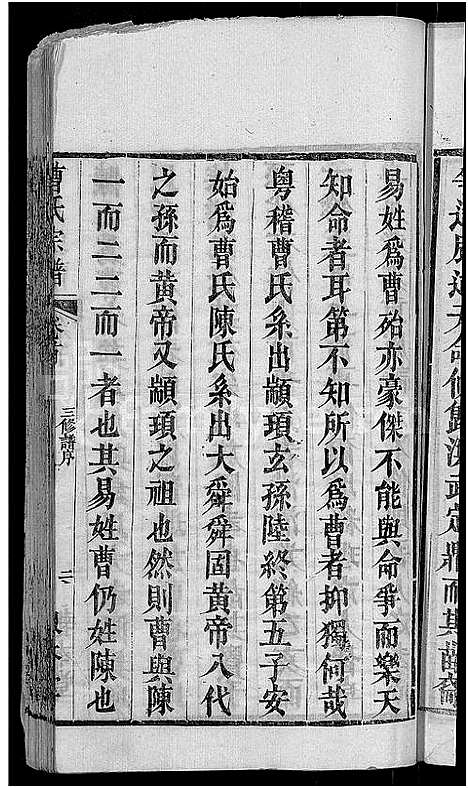 而其苗裔
易姓爲曹殆亦豪傑不能與命爭而樂天
知命者耳第不知所以爲曹者抑獨何哉
粵稽曹氏系出顓頊玄孫陸終第五子安
始爲曹氏陳氏系出大舜舜固黃帝八代
之孫而黃帝又顓頊之祖也然則曹與陳
一而二二而一者也其易姓曹仍姓陳也
曹氏宗譜
三修譜序
二